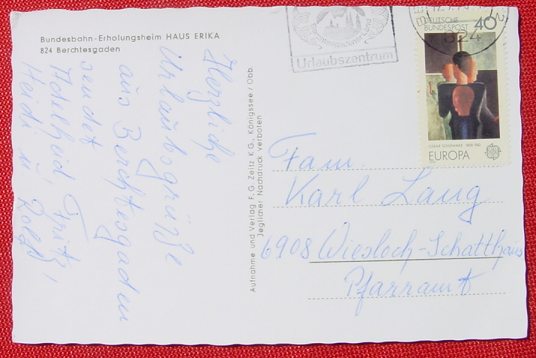 Bundesbahn-Erholungsheim HAUS ERIKA
824 Berchtesgaden
Herzliche
Urlaubsgrüße
aus Berchtesgaden
sendet
Fritz,
Heidi u. Rolf
Aufnahme und Verlag F. G. Zeitz K.G., Königssee / Obb.
Jeglicher Nachdruck verboten
Urlaubszentrum
DEUTSCHE
BUNDESPOST
40
EUROPA
Fam.
Karl Lang
6908 Wiesloch-Schatthausen
Pfarramt